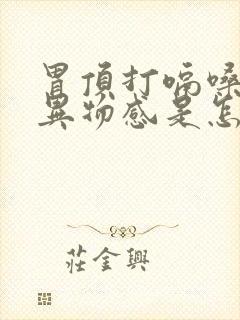 胃頂打嗝嗓
異物感是怎
莊金興